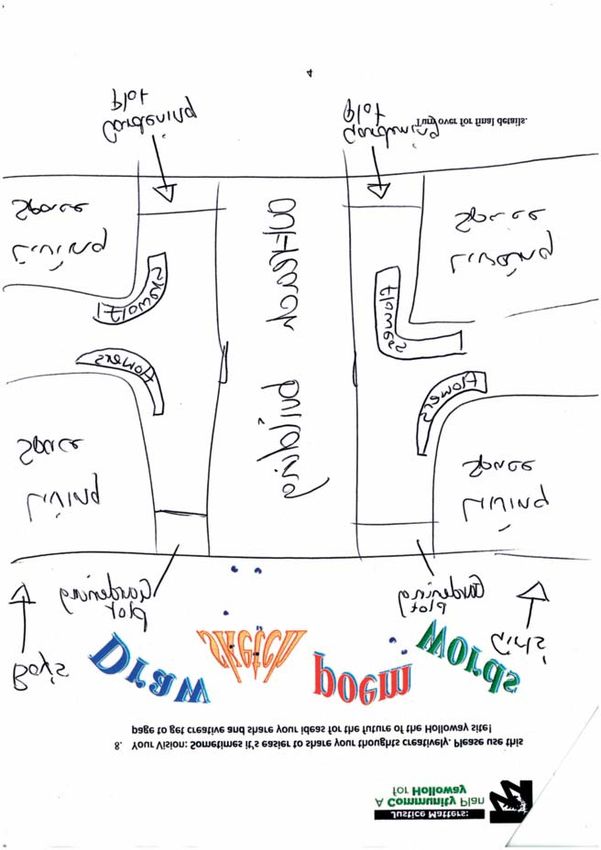 Justice Matters:
A Community Plan
for Holloway
8. Your Vision: Sometimes it's easier to share your thoughts creatively. Please use this
page to get creative and share your ideas for the future of the Holloway site!
Draw sketch poem words
Boy's
Girl's
Gardening
plot
Gardening
plot
Living
Space
Living
Space
Flowers
Flowers
outreach building
Flowers
Flowers
Living
Space
Living
Space
Gardening
Plot
Gardening
Plot
Turn over for final details.
4